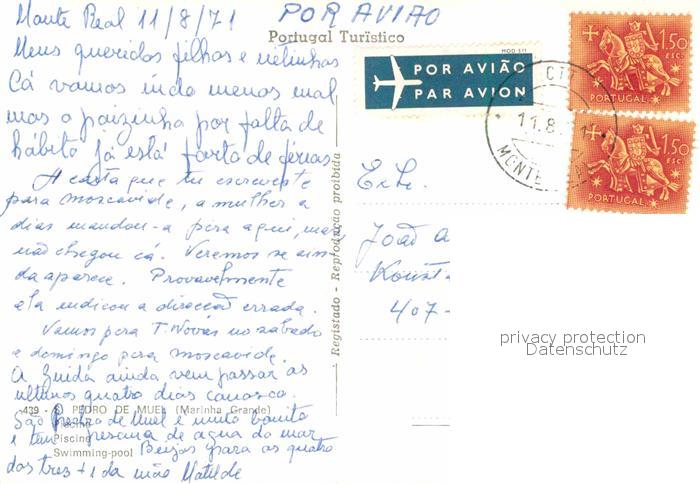 Monte Real 11/8/71 POR AVIÃO
Portugal Turístico
Meus queridos filhos e netinhos
Cá vamos indo menos mal
mas o paizinho por falta de
hábito já está farto de férias
A carta que tu escreveste
para moscavide, a mulher a
dias mandou-a para aqui, mas
não chegou cá. Veremos se ain-
da aparece. Provavelmente
ela indicou a direcção errada.
Vamos para T. Novas no sabado
e domingo para moscavide.
A Guida ainda vem passar os
ultimos quatro dias conosco.
439 - S. PEDRO DE MUEL (Marinha Grande)
São Pedro de Muel é muito bonito
Piscina
e tem piscina de agua do mar
Piscine
Swimming-pool
Beijos para os quatro
dos tres +1 da mãe Matilde
Registado - Reprodução proibida
MOD 511
POR AVIÃO
PAR AVION
CTT
11.8.71
MONTE REAL
1$50
ESC.
PORTUGAL
1$50
ESC.
PORTUGAL
João A
407-
privacy protection
Datenschutz